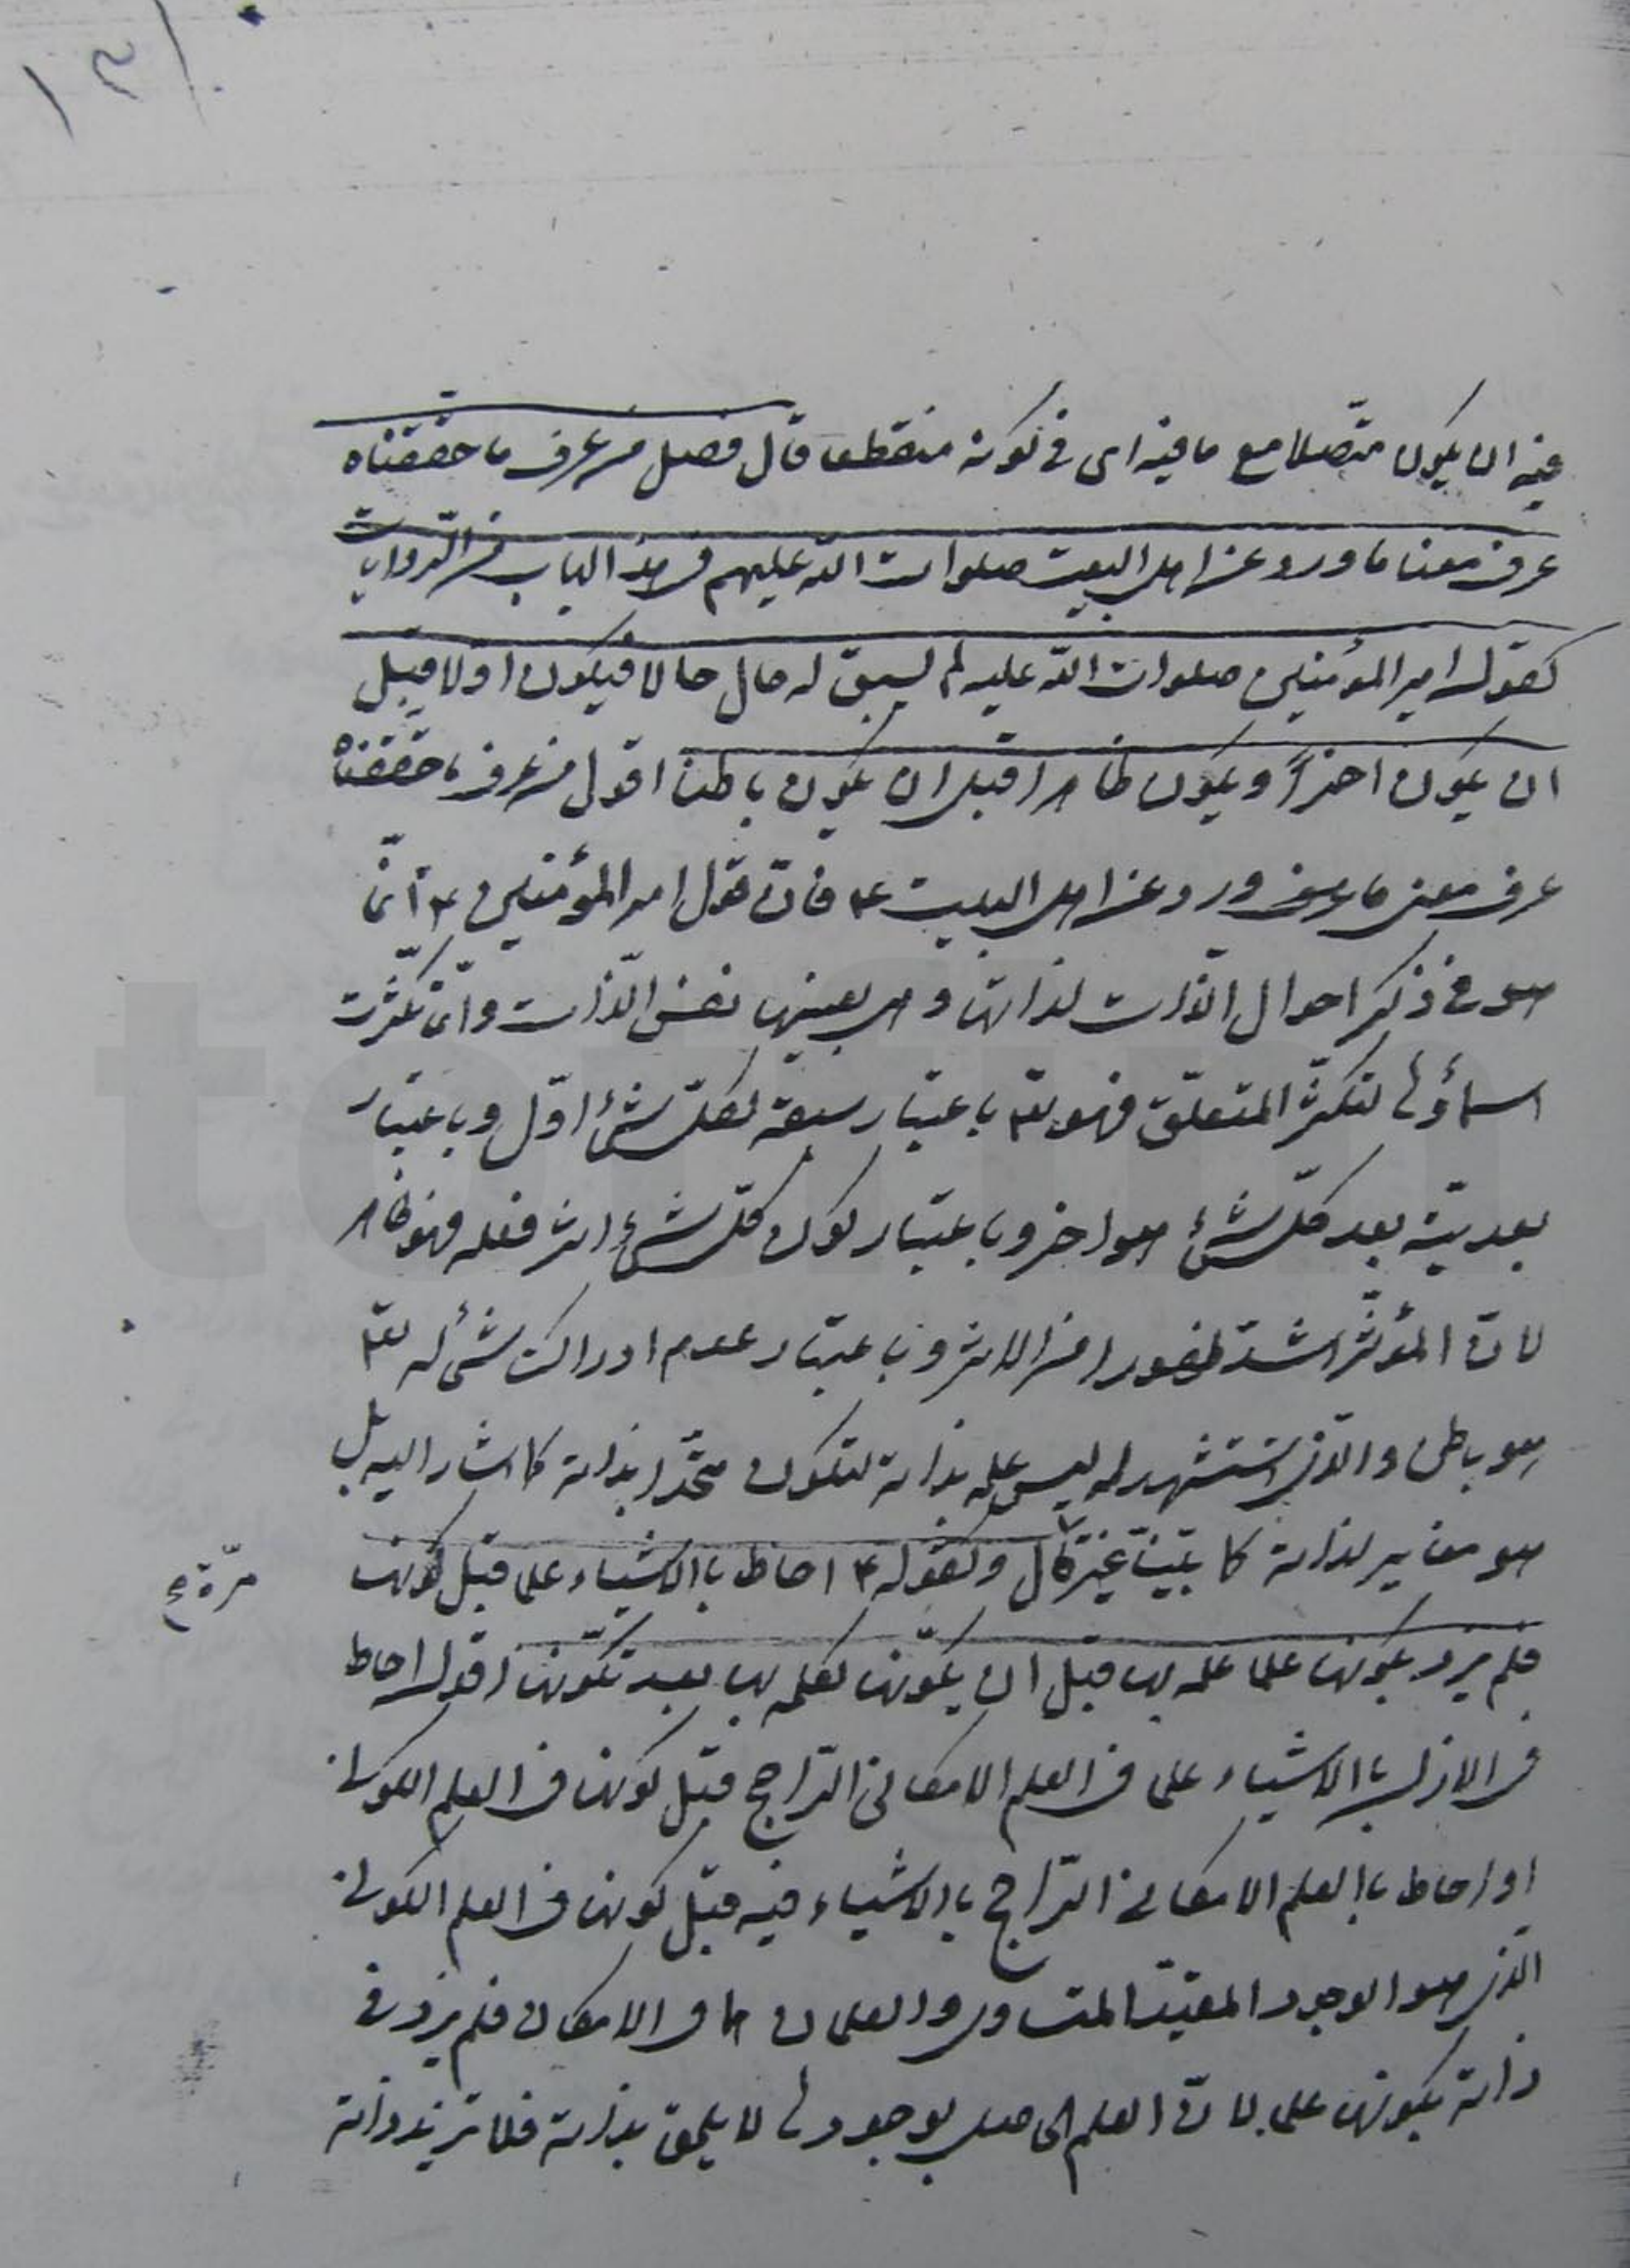 ١٣١
فيه ان يكون متصلا مع ما فيه اى فى كونه منقطعا قال فصل من عرف ما حققناه
عرف معنا ما ورد عن اهل البيت صلوات الله عليهم فى هذا الباب من الروايات
كقول امير المؤمنين صلوات الله عليه لم يسبق له حال حالا فيكون اولا قبل
ان يكون اخراً ويكون ظاهرا قبل ان يكون باطنا اقول من عرف ما حققناه
عرف معنى ما ورد عن اهل البيت ع فان قول امير المؤمنين ع انّما
هو فى ذكر احوال الذات لذاتها وهى بعينها نفس الذات وانما تكثرت
اسماؤها لتكثر المتعلق فهو تع باعتبار سبقه لكل شئ اوّل وباعتبار
بعديته بعد كل شئ هو اخر وباعتبار كون كل شئ اثر فعله فهو ظاهر
لان المؤثر اشد ظهورا من الاثر وباعتبار عدم ادراك شئ له تع
هو باطن والذى استشهد له ليس علمه بذاته لتكون متحدا بذاته كما اشار اليه بل
هو مغاير لذاته كما بيّنا غير مرّة قال وكقوله ع احاط بالاشياء علما قبل كونها
مرّة صح
فلم يزدد بكونها علما علمه بها قبل ان يكونها كعلمه بها بعد تكونها اقول احاط
فى الازل بالاشياء علما فى العلم الامكانى الراجح قبل كونها فى العلم الكونى
او احاط بالعلم الامكانى الراجح بالاشياء فيه قبل كونها فى العلم الكونى
الذى هو الوجود المقيد المتساوى والعلمان هما فى الامكان فلم يزدد فى
ذاته بكونها علما لان العلم الحاصل بوجودها لا يلحق بذاته فلا تزيد ذاته